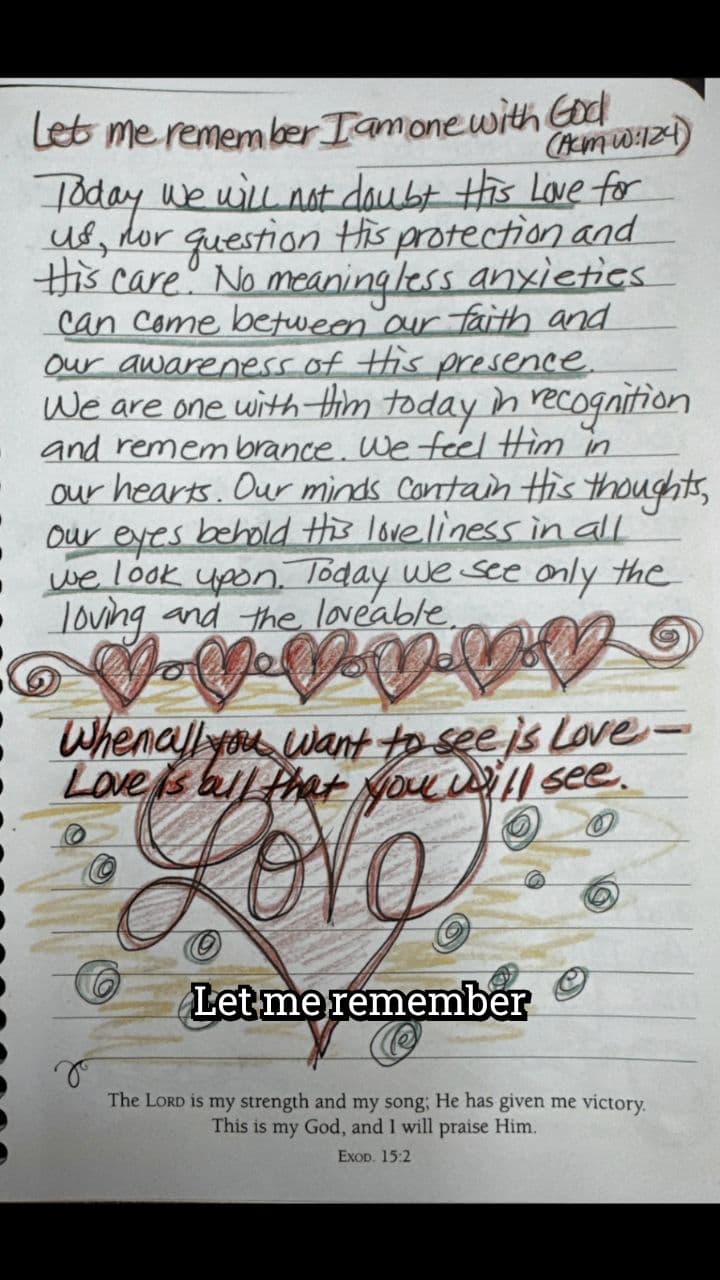 Let me remember I am one with God
(ACIM W:124)
Today we will not doubt His Love for
us, nor question His protection and
His care. No meaningless anxieties
can come between our faith and
our awareness of His presence.
We are one with Him today in recognition
and remembrance. We feel Him in
our hearts. Our minds contain His thoughts,
our eyes behold His loveliness in all
we look upon. Today we see only the
loving and the loveable.
When all you want to see is Love –
Love is all that you will see.
Love
Let me remember
The LORD is my strength and my song; He has given me victory.
This is my God, and I will praise Him.
EXOD. 15:2